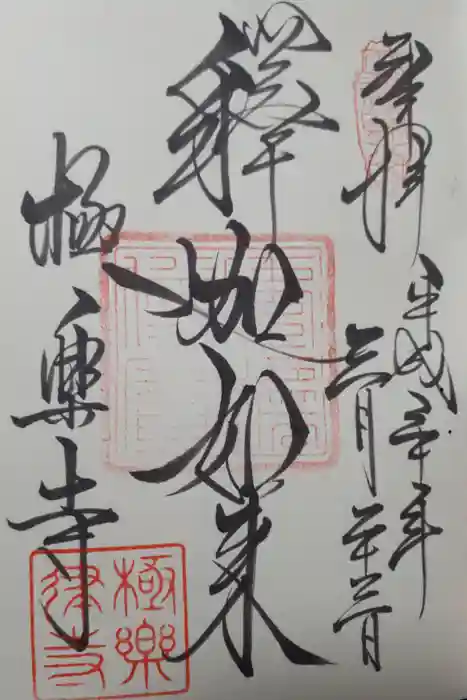 奉拝
平成三十年
六月二十三日
釋迦如来
極樂寺
極樂
律寺